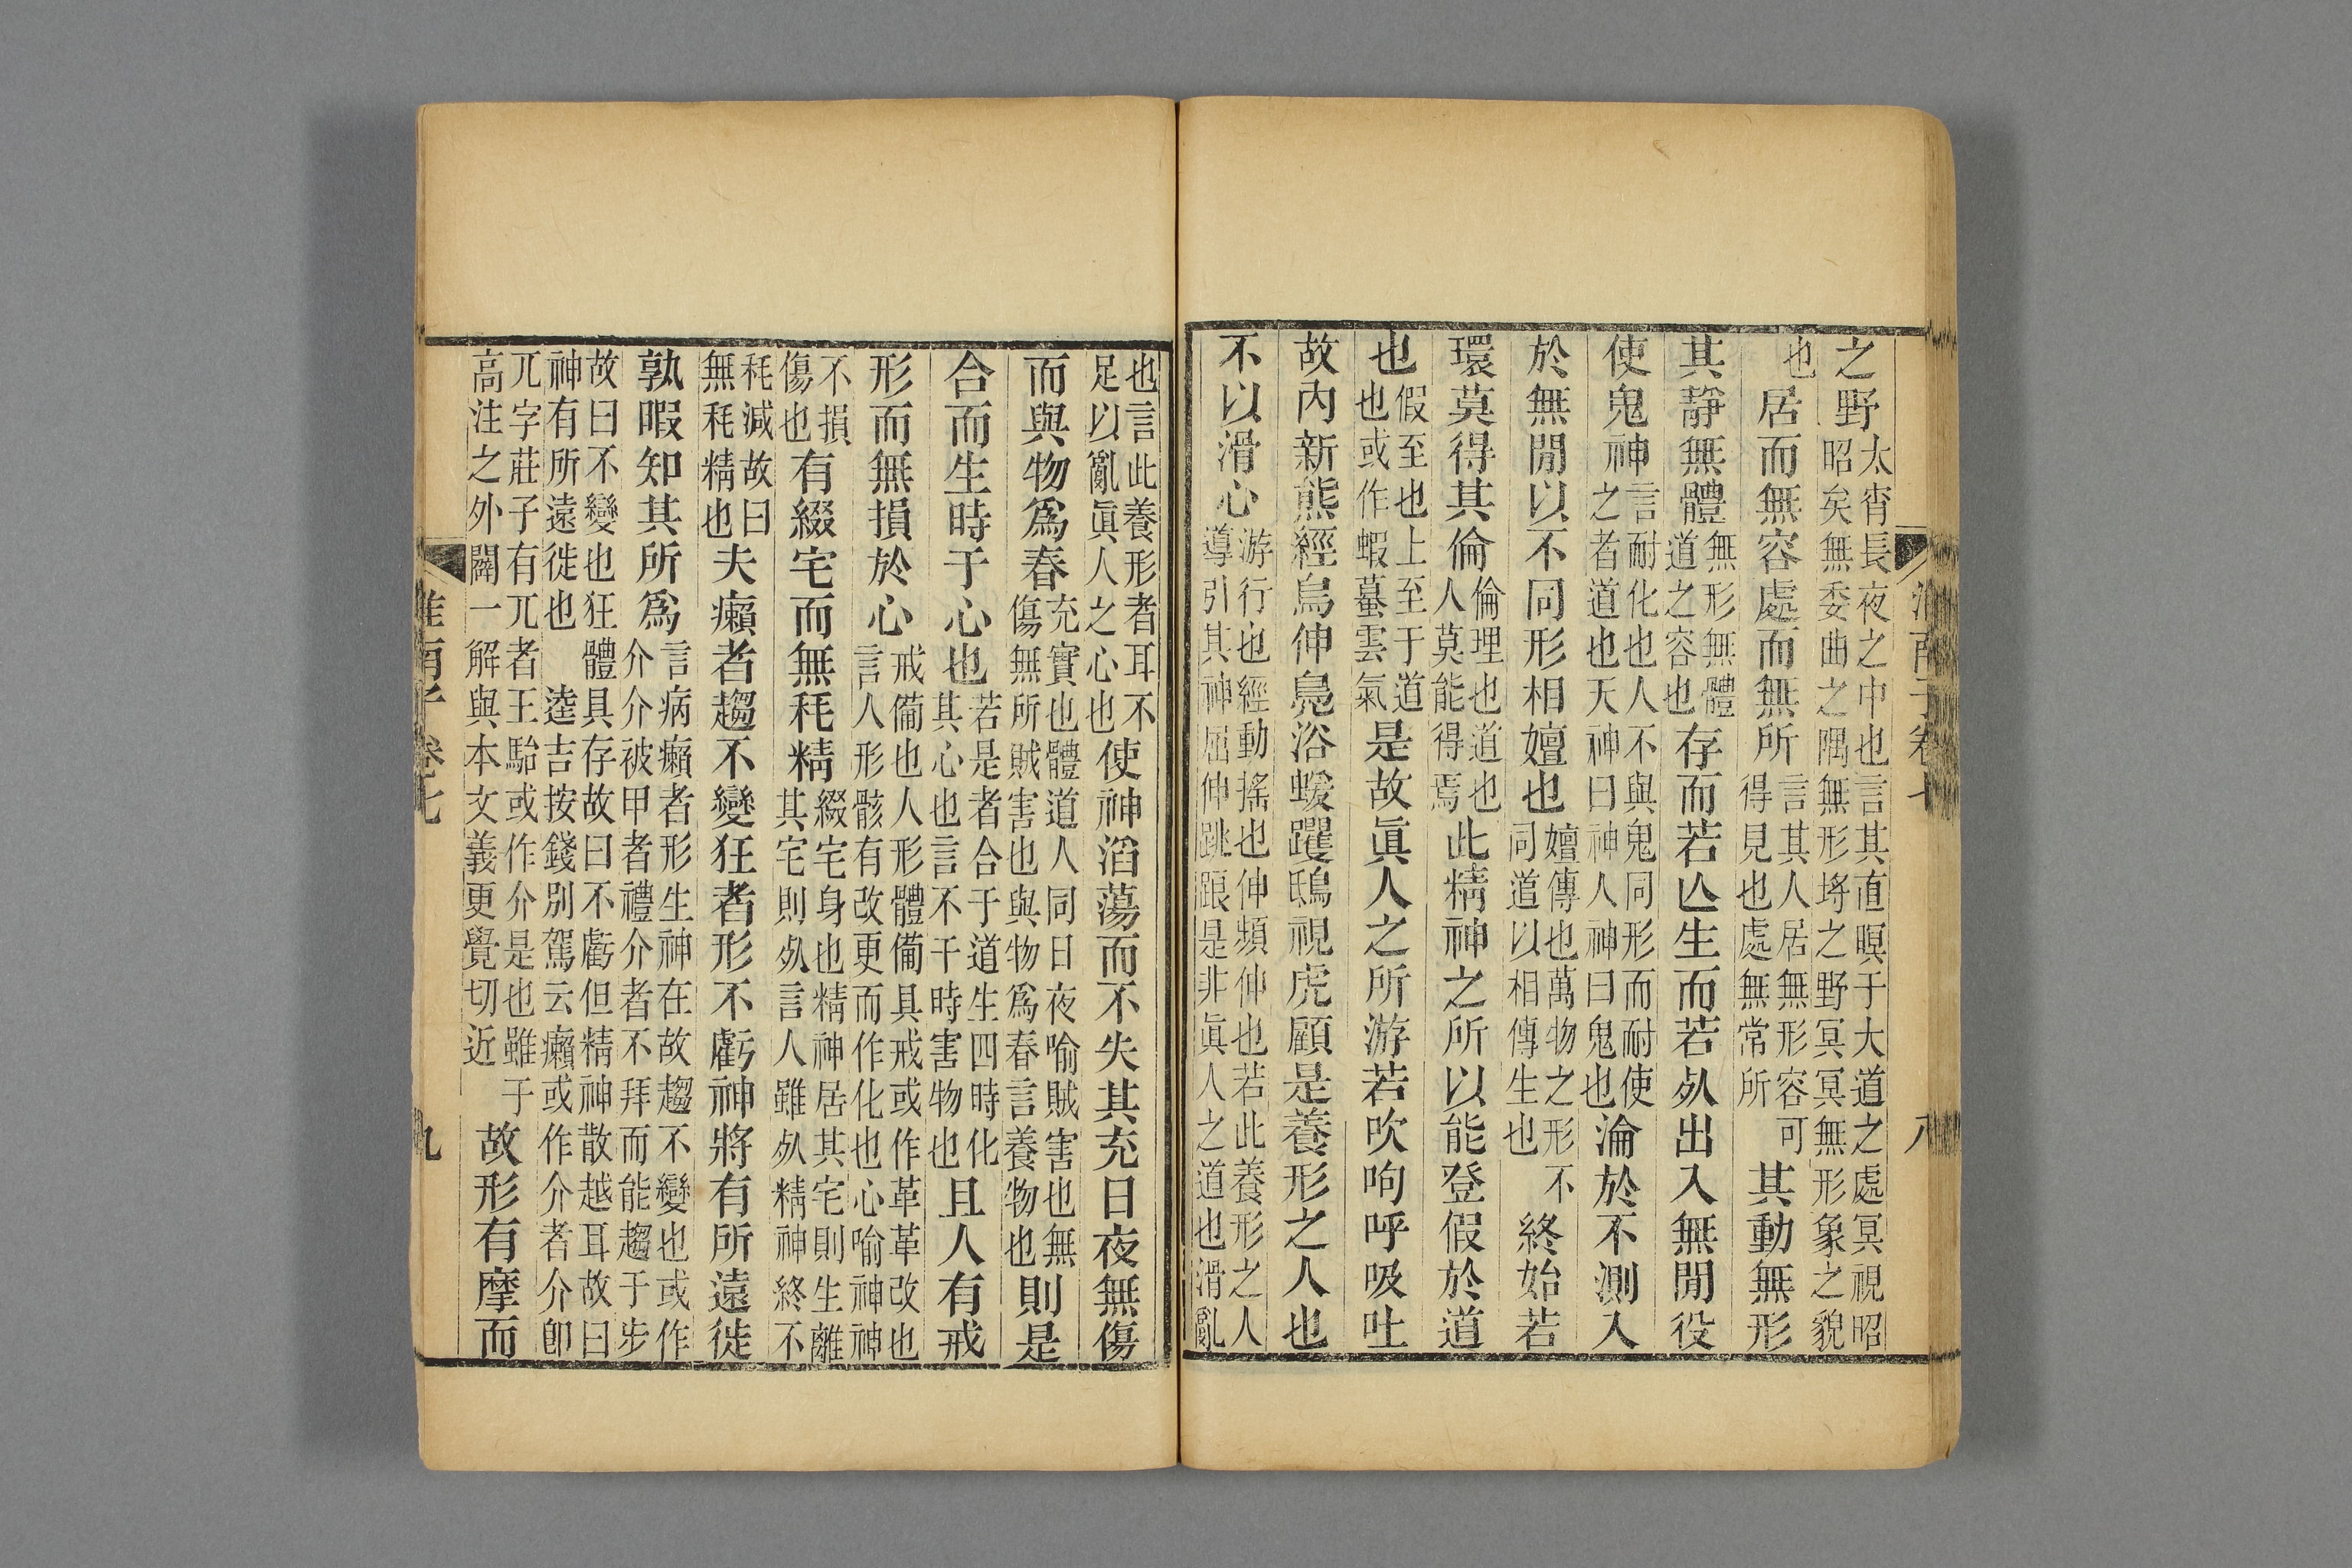 之野太宵長夜之中也言其直暝于大道之處冥視昭昭矣無委曲之隅無形埒之野冥冥無形象之貌
也居而無容處而無所言其人居無形容可得見也處無常所其動無形
其靜無體無形無體道之容也存而若亾生而若𣦸出入無閒役
使鬼神言耐化也人不與鬼同形而耐使之者道也天神曰神人神曰鬼也淪於不測入
於無閒以不同形相嬗也嬗傳也萬物之形不同道以相傳生也終始若
環莫得其倫倫理也道也人莫能得焉此精神之所以能登假於道
也假至也上至于道也或作蝦蟇雲氣是故眞人之所游若吹呴呼吸吐
故內新熊經鳥伸鳧浴蝯躩鴟視虎顧是養形之人也
不以滑心游行也經動搖也伸頻伸也若此養形之人導引其神屈伸跳踉是非眞人之道也滑亂
淮南子卷七 八
也言此養形者耳不足以亂眞人之心也使神滔蕩而不失其充日夜無傷
而與物爲春充實也體道人同日夜喻賊害也無傷無所賊害也與物爲春言養物也則是
合而生時于心也若是者合于道生四時化其心也言不干時害物也且人有戒
形而無損於心戒備也人形體備具戒或作革革改也言人形骸有改更而作化也心喻神神
不損傷也有綴宅而無秏精綴宅身也精神居其宅則生離其宅則𣦸言人雖𣦸精神終不
秏減故曰無秏精也夫癩者趨不變狂者形不虧神將有所遠徙
孰暇知其所爲言病癩者形生神在故趨不變也或作介介被甲者禮介者不拜而能趨于步
故曰不變也狂體具存故曰不虧但精神散越耳故曰神有所遠徙也 逵吉按錢別駕云癩或作介者介卽
兀字莊子有兀者王駘或作介是也雖于高注之外闢一解與本文義更覺切近故形有摩而
淮南子卷七 九